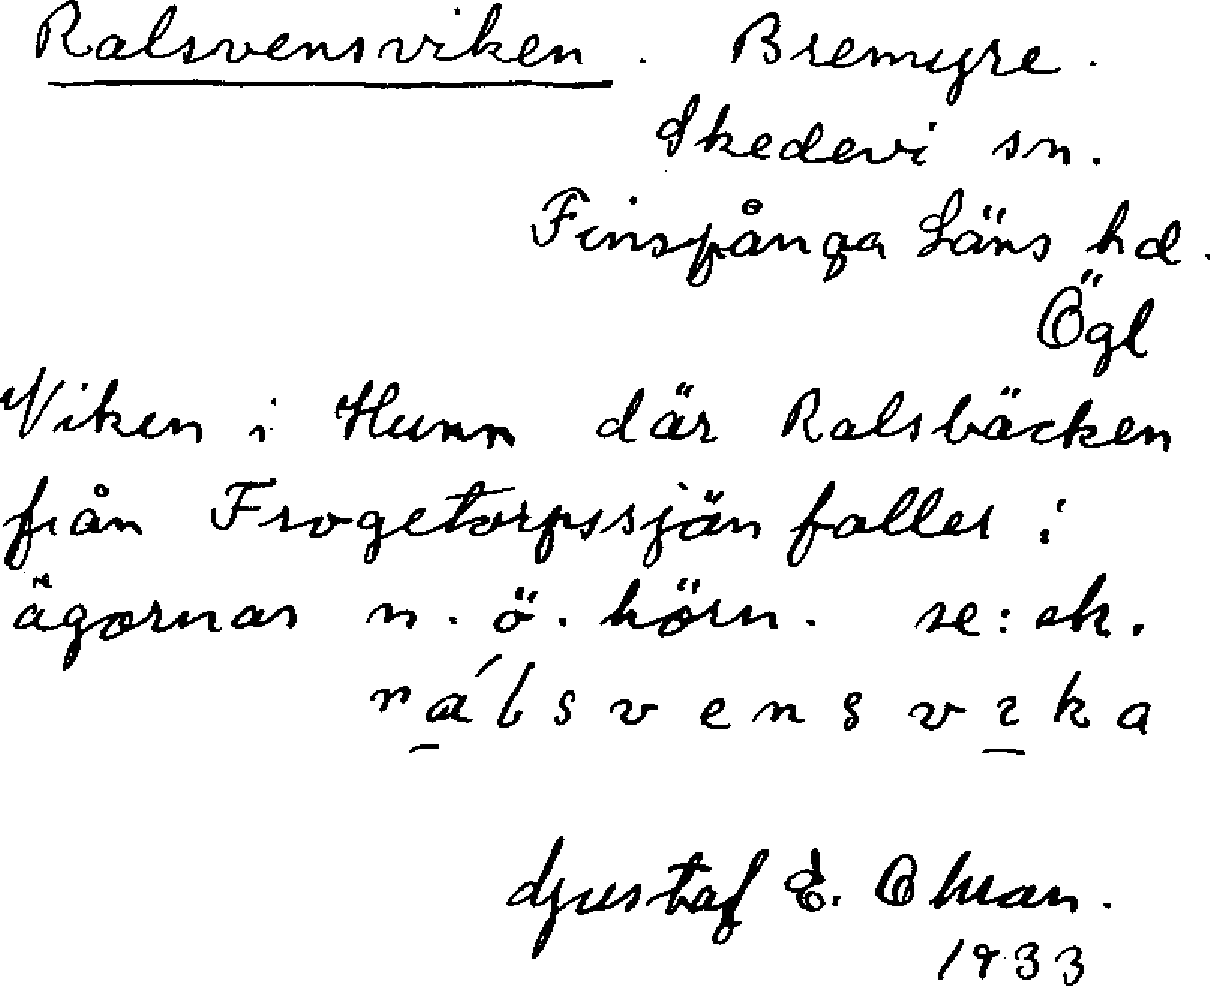 Ralsvensviken. Bremyre.
Skedevi sn.
Finspånga Läns hd.
Ögl
Viken i Hunn där Ralsbäcken
från Frogetorpssjän faller i
ägornas n. ö. hörn. se: ek.
rálsvensvika
Gustaf E. Ohman.
1933